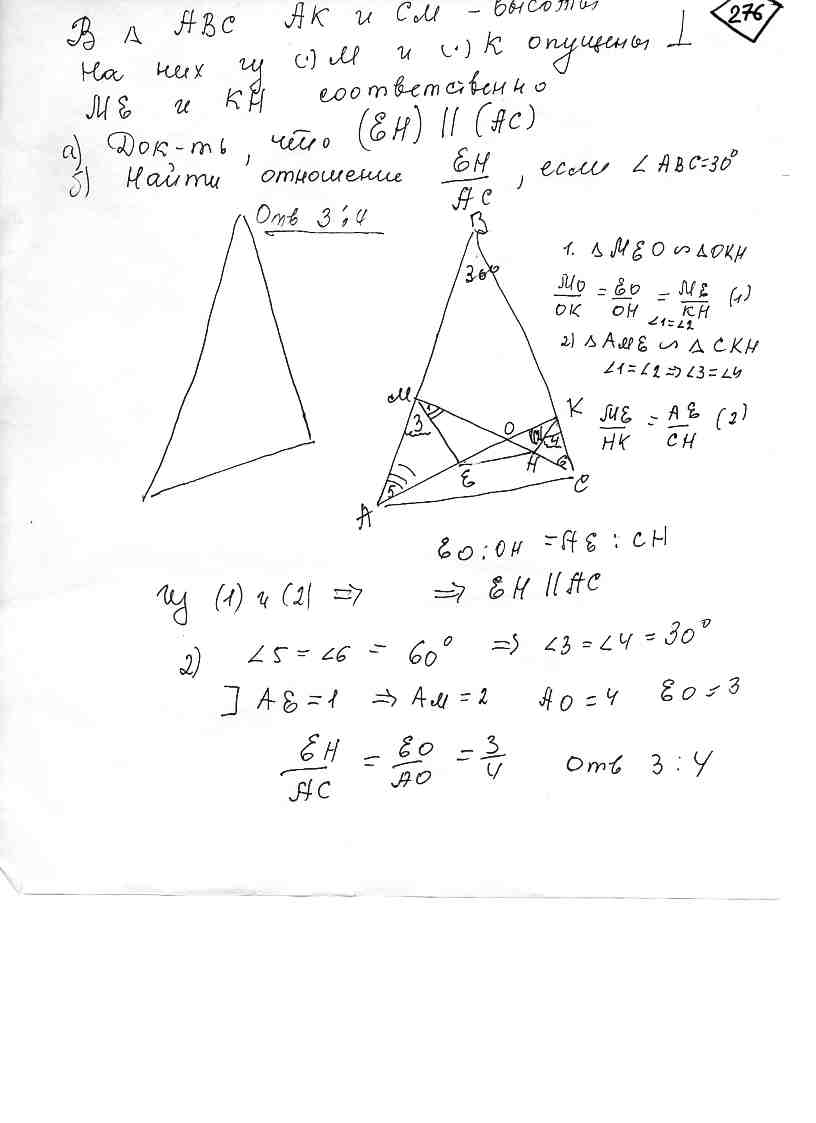 276
В Δ ABC AK и CM - высоты
На них из (·) M и (·) K опущены ⊥
ME и KH соответственно
а) Док-ть, что (EH) || (AC)
б) Найти отношение EH/AC, если ∠ABC=30°
Отв 3:4
B
30°
M
K
3
O
4
E
H
2
5
A
C
1. Δ MEO ∾ ΔOKH
MO/OK = EO/OH = ME/KH (1)
∠1=∠2
2) Δ AME ∾ Δ CKH
∠1=∠2 ⇒ ∠3=∠4
ME/HK = AE/CH (2)
EO : OH = AE : CH
Из (1) и (2) ⇒ ⇒ EH || AC
2) ∠5 = ∠6 = 60° ⇒ ∠3 = ∠4 = 30°
] AE = 1 ⇒ AM = 2 AO = 4 EO = 3
EH/AC = EO/AO = 3/4 Отв 3 : 4